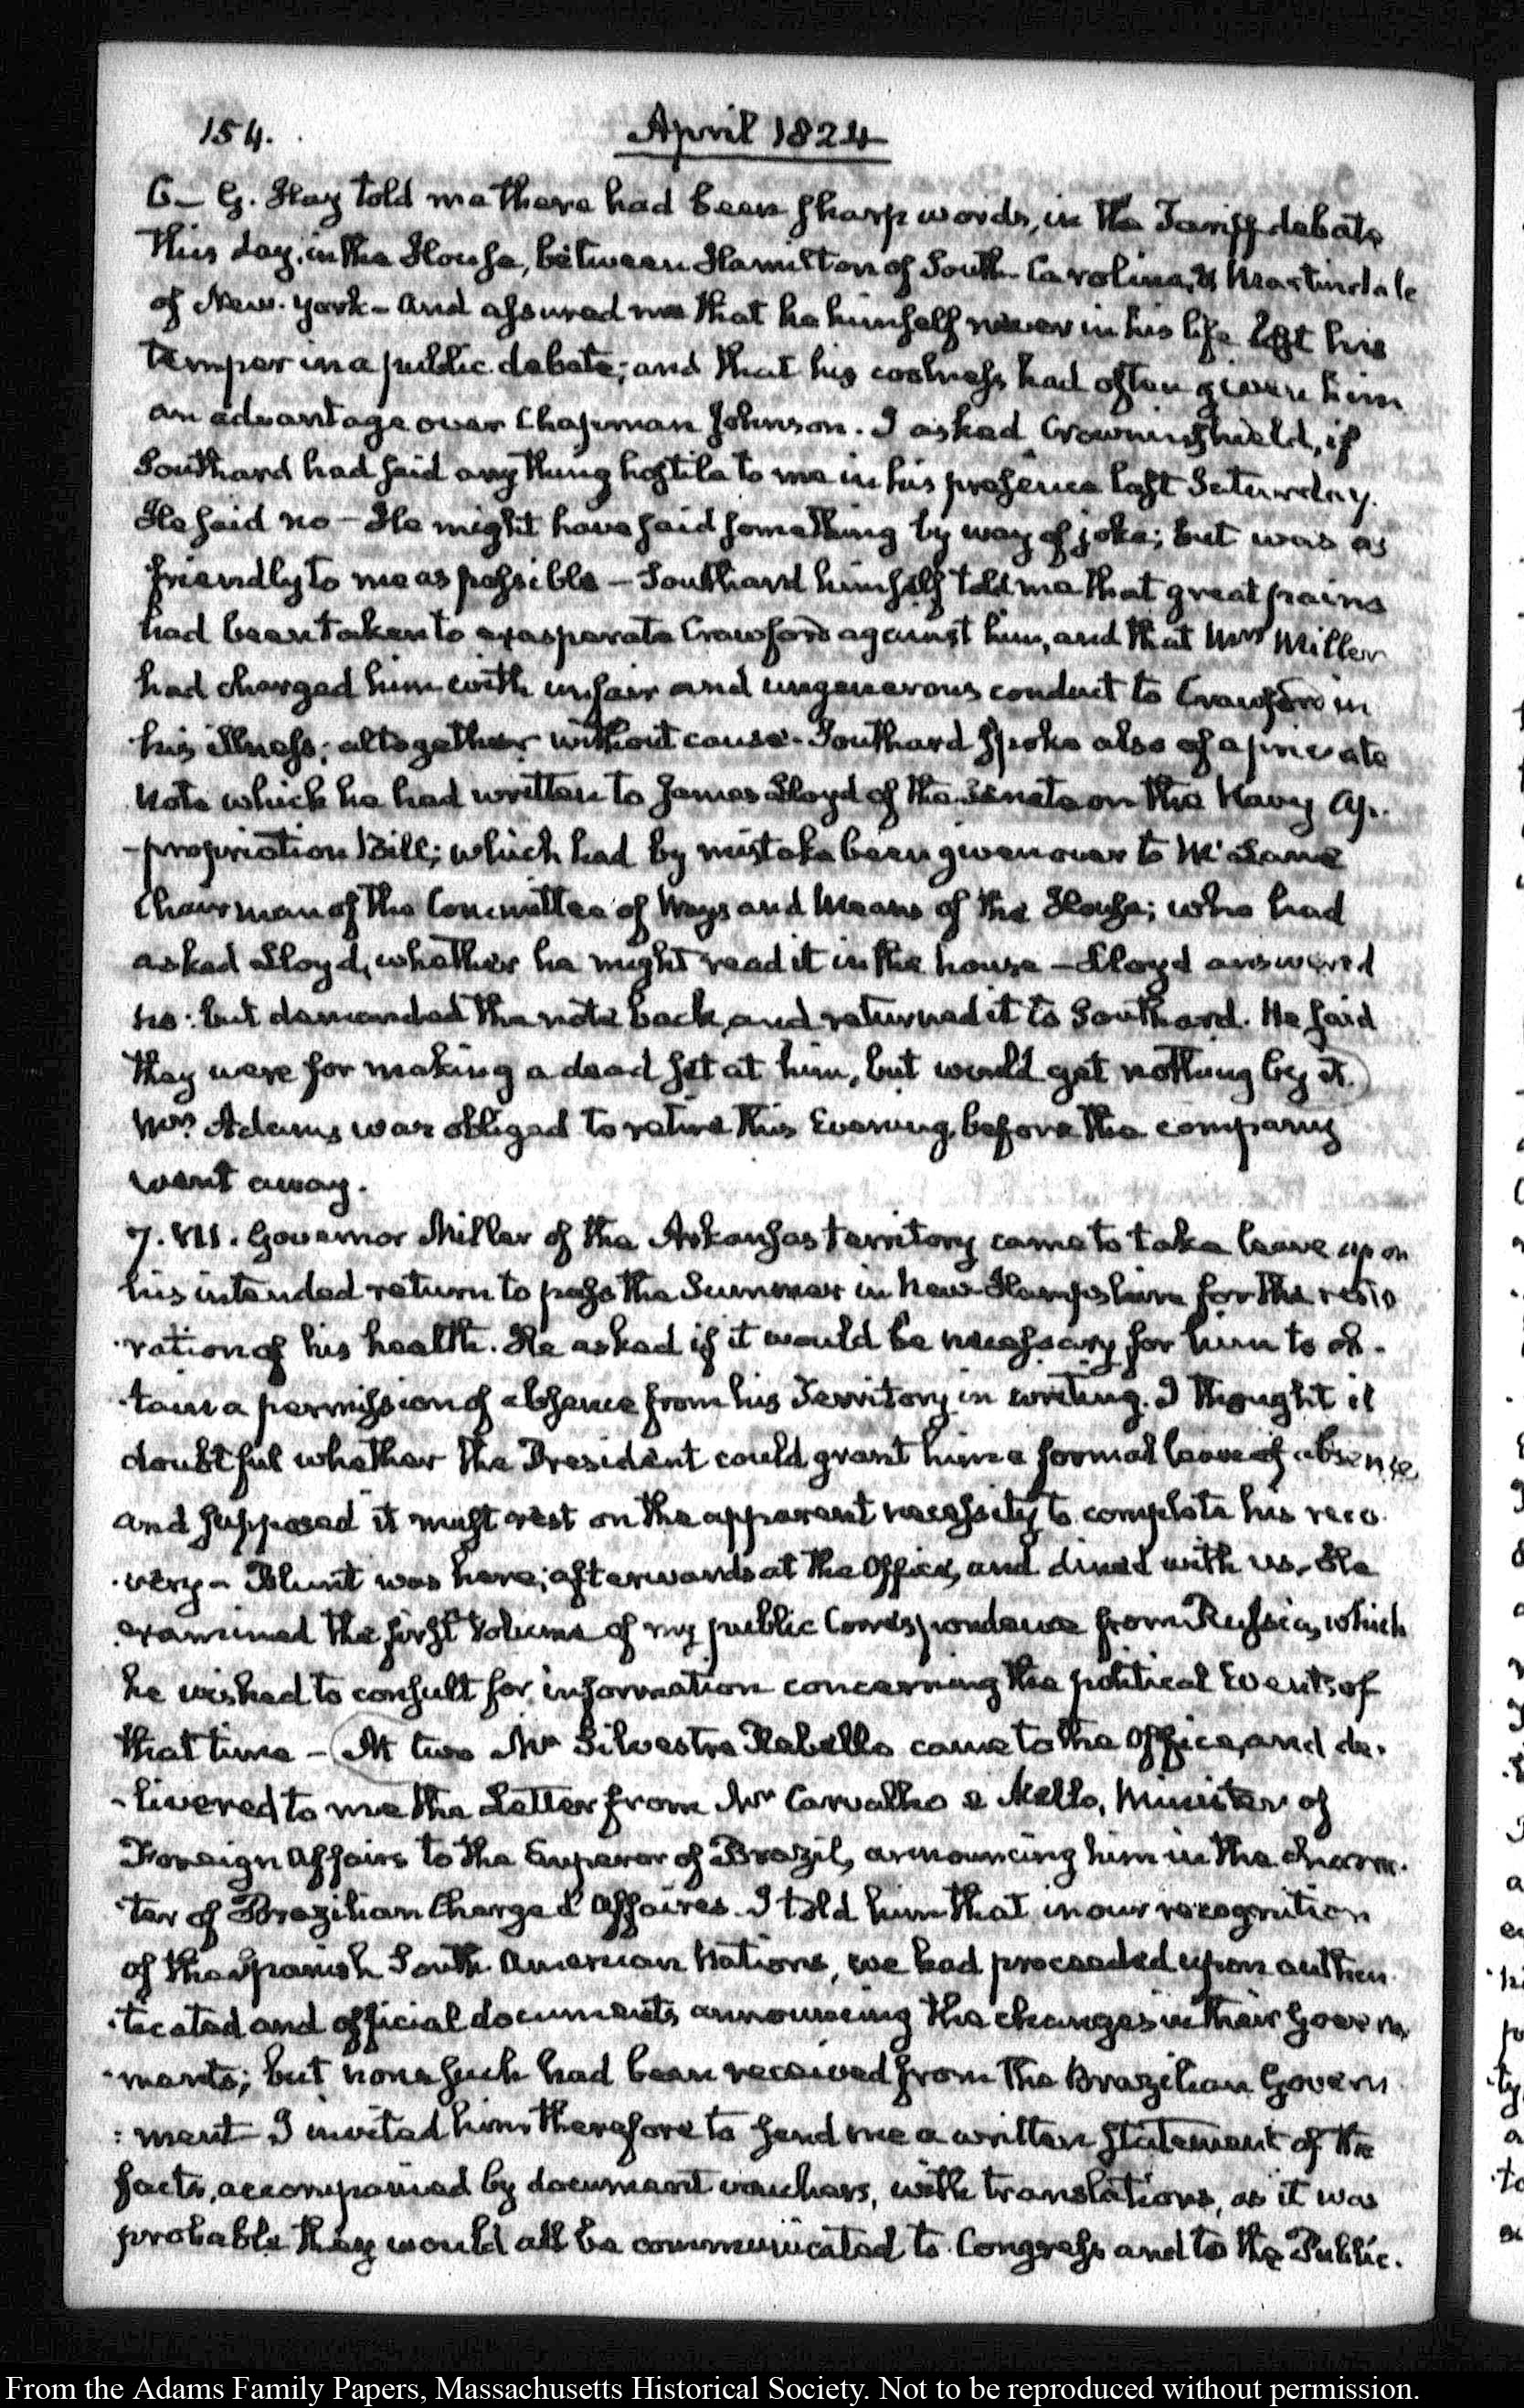 154.
April 1824
6— G. Hay told me there had been sharp words, in the Tariff debate
this day, in the House, between Hamilton of South-Carolina, & Martindale
of New-York— and assured me that he himself never in his life lost his
temper in a public debate; and that his coolness had often given him
an advantage over Chapman Johnson. I asked Crowninshield, if
Southard had said any thing hostile to me in his presence last Saturday.
He said no— He might have said something by way of joke; but was as
friendly to me as possible— Southard himself told me that great pains
had been taken to exasperate Crawford against him, and that Mrs Miller
had charged him with unfair and ungenerous conduct to Crawford in
his illness; altogether without cause— Southard spoke also of a private
note which he had written to James Lloyd of the Senate on the Navy Ap-
-propriation Bill; which had by mistake been given over to McLane
Chairman of the Committee of Ways and Means of the House; who had
asked Lloyd, whether he might read it in the house— Lloyd answered
no: but demanded the note back, and returned it to Southard. He said
they were for making a dead set at him, but would get nothing by it.
Mrs. Adams was obliged to retire this Evening, before the company
went away.
7. VII. Governor Miller of the Arkansas territory came to take leave upon
his intended return to pass the Summer in New-Hampshire for the resto
-ration of his health. He asked if it would be necessary for him to ob-
-tain a permission of absence from his Territory in writing. I thought it
doubtful whether the President could grant him a formal leave of absence,
and supposed it must rest on the apparent necessity to complete his reco-
-very— Blunt was here; afterwards at the Office, and dined with us. He
examined the first volume of my public Correspondence from Russia, which
he wished to consult for information concerning the political Events of
that time— At two Mr Silvestre Rebello came to the Office, and de-
-livered to me the Letter from Mr Carvalho e Mello, Minister of
Foreign Affairs to the Emperor of Brazil, announcing him in the charac-
-ter of Brazilian Chargé d'Affaires. I told him that in our recognition
of the Spanish South-American Nations, we had proceeded upon authen-
-ticated and official documents, announcing the changes in their Govern-
-ments; but none such had been received from the Brazilian Govern-
-ment— I invited him therefore to send me a written statement of the
facts, accompanied by document vouchers, with translations, as it was
probable they would all be communicated to Congress and to the Public.
From the Adams Family Papers, Massachusetts Historical Society. Not to be reproduced without permission.